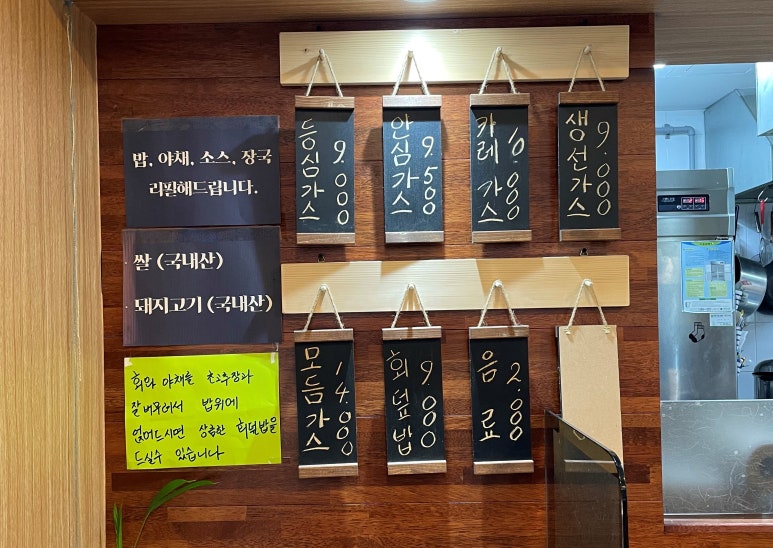 밥, 야채, 소스, 장국
리필해드립니다.
쌀 (국내산)
돼지고기 (국내산)
회와 야채를 초고추장과
잘 비무려서 밥위에
얹어드시면 상큼한 회덮밥을
드실수 있습니다
등심가스
9.000
안심가스
9.500
카레가스
10.000
생선가스
9.000
모듬가스
14.000
회덮밥
9.000
음료
2.000